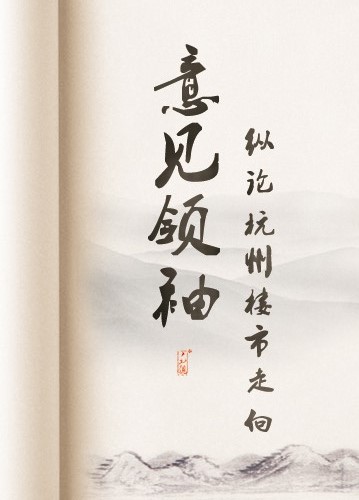 意见领袖
纵论杭州楼市走向